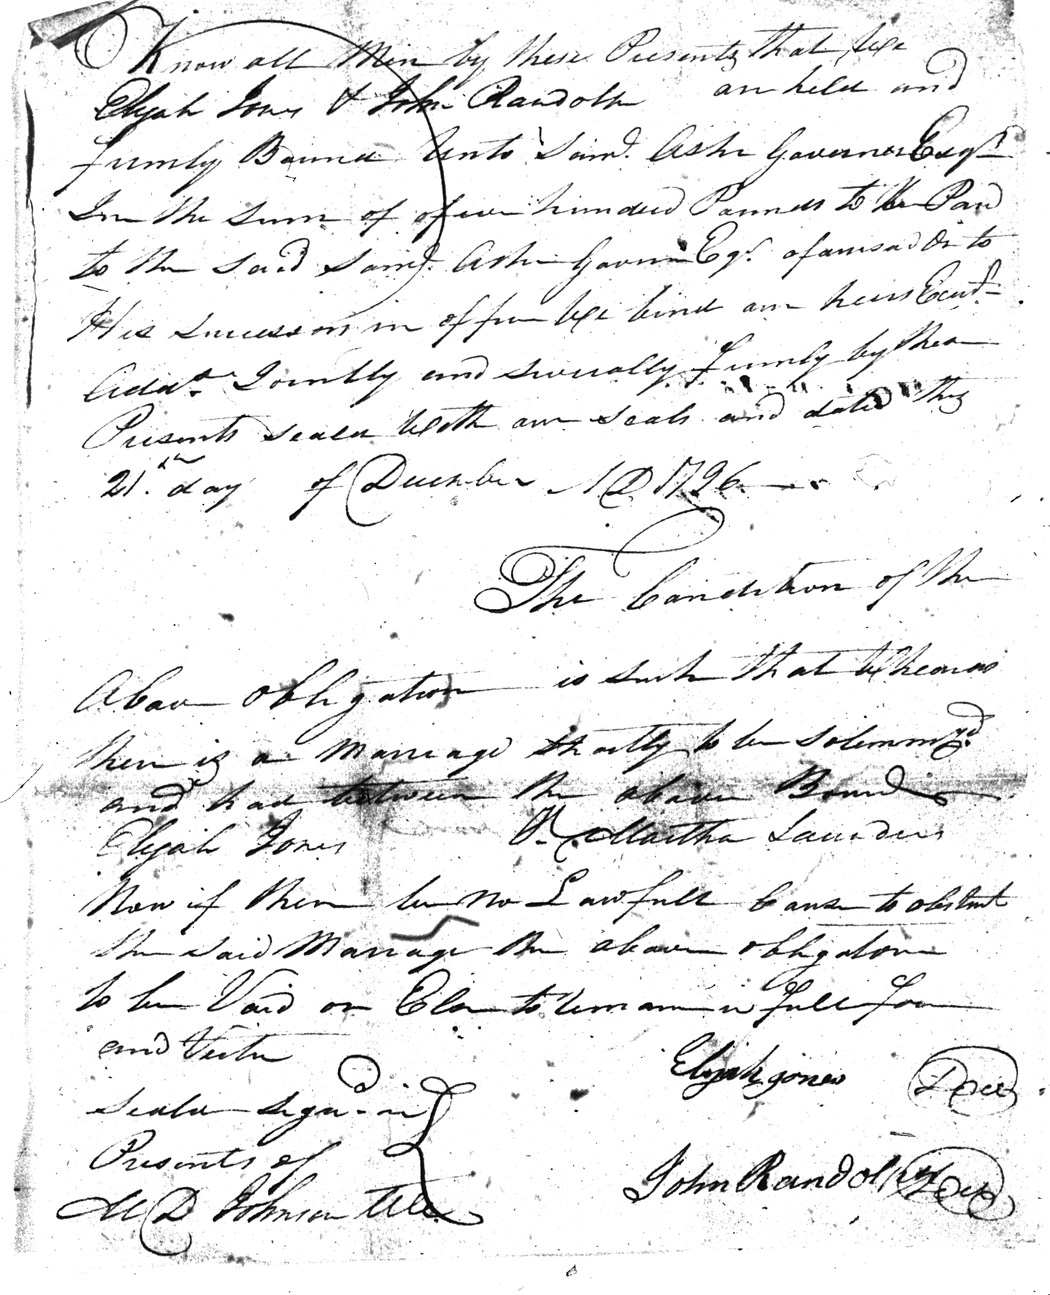 Know all Men by these Presents that We
Elijah Jones & John Randolh are held and
firmly Bound Unto Samd. Ashe Governor Esqr
In the Sum of of five hundred Pounds to be Paid
to the Said Samd. Ashe Govern Esqr. aforesaid Or to
His Successors in office We bind our heirs Excutrs
Addrs. Jointly and severally firmly by these
Presents sealed With our seals and dated this
21st. day of December AD 1796
The Condition of the
Above obligation is such that Whereas
there is a Marriage shortly to be solemnizd
and had between the above Bound
Elijah Jones & Martha Saunders
Now if there be no Lawfull Cause to obstruct
the said Marriage the above obligation
to be Void or Else to remain in full force
and Virtue
Seald Signd. in
Presents of
M D Johnson
Elijah jones Seal
John Randolh Seal